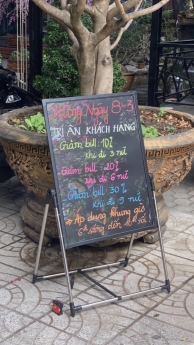 Mừng Ngày 8-3
TRI ÂN KHÁCH HÀNG
Giảm bill 10%
khi đi 3 nữ
Giảm bill 20%
khi đi 6 nữ
Giảm bill 30%
khi đi 9 nữ
* Áp dụng khung giờ
6h sáng đến tối